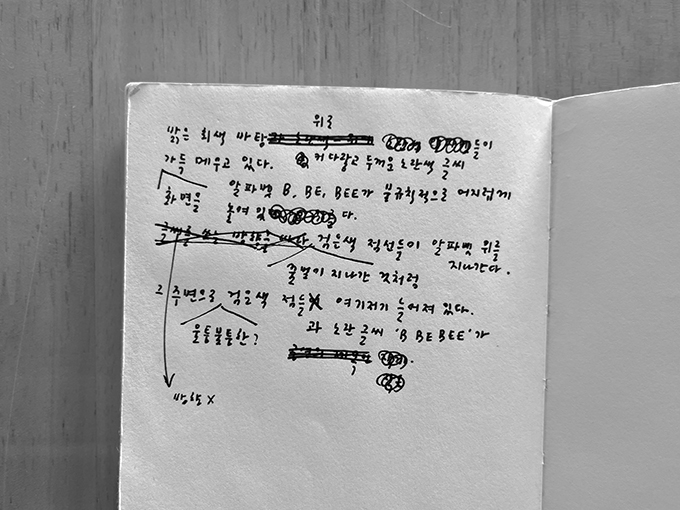 위로
밝은 회색 바탕 들이
가득 메우고 있다. 커다랗고 두꺼운 노란색 글씨
화면을 알파벳 B, BE, BEE가 불규칙적으로 어지럽게
놓여 있 다.
검은색 점선들이 알파벳 위를
지나간다.
꿀벌이 지나간 것처럼
그 주변으로 검은색 점들 여기저기 늘어져 있다.
울퉁불퉁한? 과 노란 글씨 'B BE BEE'가
방향 X